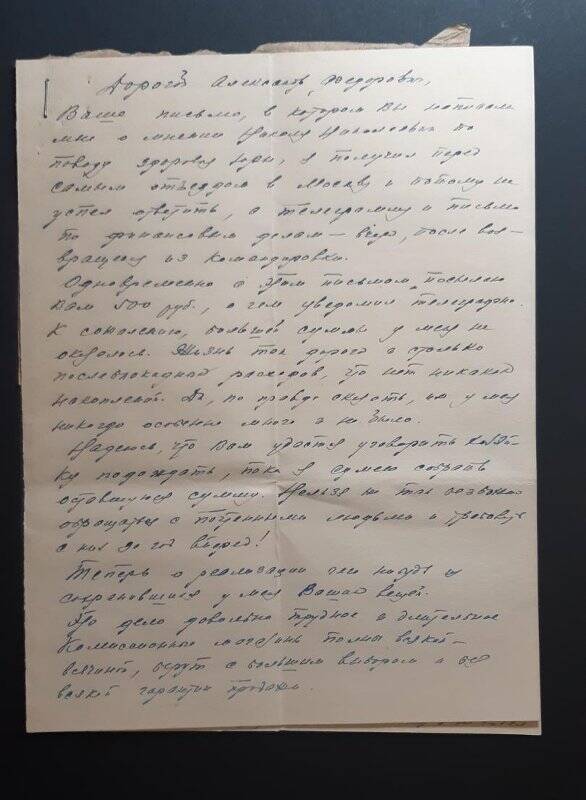 Дорогой Александр Федорович,
Ваше письмо, в котором Вы написали
мне о мнении Николая Николаевича по
поводу здоровья Юры, я получил перед
самым отъездом в Москву и потому не
успел ответить, а телеграмму и письмо
по финансовым делам — вчера, после воз-
вращения из командировки.
Одновременно с этим письмом посылаю
Вам 500 руб., о чем уведомил телеграфно.
К сожалению, большей суммы у меня не
оказалось. Жизнь так дорога и столько
послеблокадных расходов, что нет никаких
накоплений. Да, по правде сказать, их у меня
никогда особенно много и не было.
Надеюсь, что Вам удастся уговорить хозяй-
ку подождать, пока я сумею собрать
оставшуюся сумму. Нельзя же так
обращаться с почтенными людьми и требовать
с них за год вперед!
Теперь о реализации чего нибудь из
сохранившихся у меня Ваших вещей.
Это дело довольно трудное и длительное
Комиссионные магазины полны всякой-
всячиной, берут с большим выбором и без
всякой гарантии продажи.